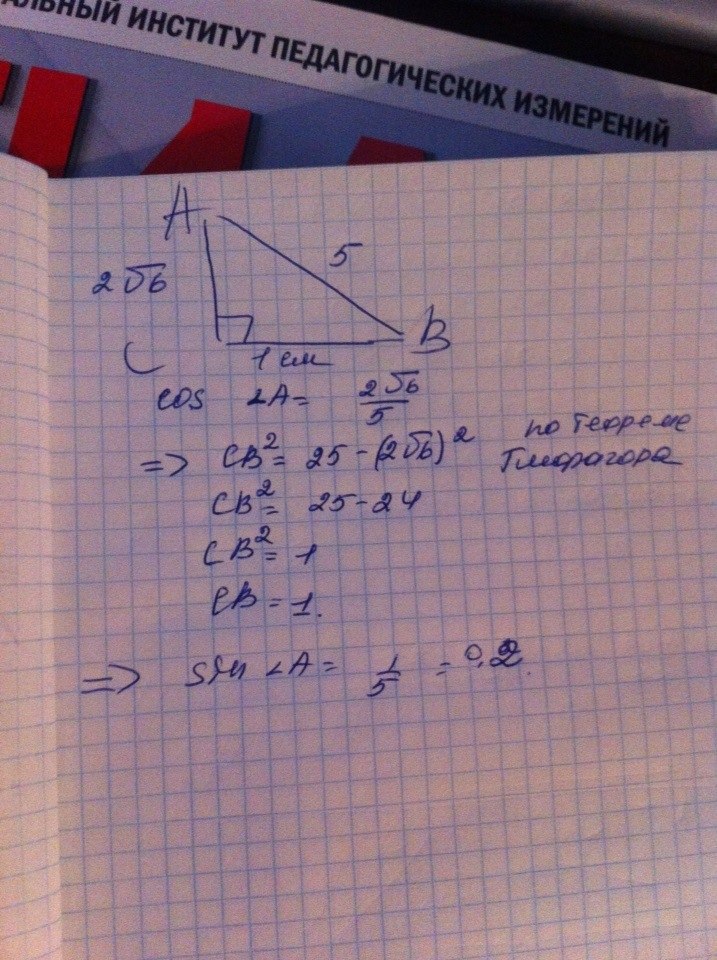 АЛЬНЫЙ ИНСТИТУТ ПЕДАГОГИЧЕСКИХ ИЗМЕРЕНИЙ
A
2√6
5
B
C
1 см
cos ∠A = 2√6/5
=> CB² = 25 - (2√6)² по теореме Пифагора
CB² = 25 - 24
CB² = 1
CB = 1.
=> sin ∠A = 1/5 = 0,2.